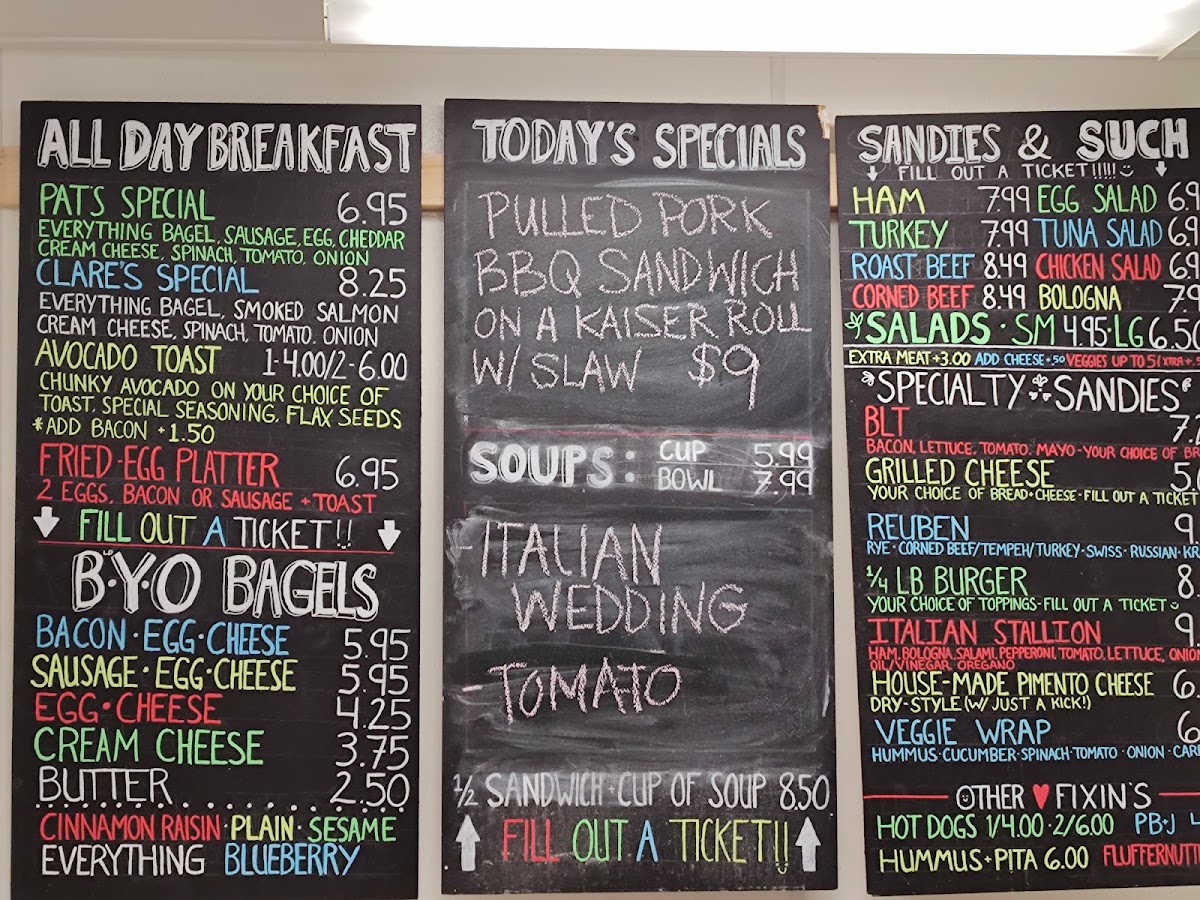 ALL DAY BREAKFAST
PAT'S SPECIAL 6.95
EVERYTHING BAGEL, SAUSAGE, EGG, CHEDDAR
CREAM CHEESE, SPINACH, TOMATO, ONION
CLARE'S SPECIAL 8.25
EVERYTHING BAGEL, SMOKED SALMON
CREAM CHEESE, SPINACH, TOMATO, ONION
AVOCADO TOAST 1-4.00/2-6.00
CHUNKY AVOCADO ON YOUR CHOICE OF
TOAST, SPECIAL SEASONING, FLAX SEEDS
*ADD BACON +1.50
FRIED-EGG PLATTER 6.95
2 EGGS, BACON OR SAUSAGE + TOAST
FILL OUT A TICKET!!
B·Y·O BAGELS
BACON·EGG·CHEESE 5.95
SAUSAGE·EGG·CHEESE 5.95
EGG·CHEESE 4.25
CREAM CHEESE 3.75
BUTTER 2.50
CINNAMON RAISIN·PLAIN·SESAME
EVERYTHING BLUEBERRY
TODAY'S SPECIALS
PULLED PORK
BBQ SANDWICH
ON A KAISER ROLL
W/ SLAW $9
SOUPS: CUP 5.99
BOWL 7.99
- ITALIAN
WEDDING
- TOMATO
1/2 SANDWICH + CUP OF SOUP 8.50
FILL OUT A TICKET!!
SANDIES & SUCH
FILL OUT A TICKET!!!!!
HAM 7.99 EGG SALAD
TURKEY 7.99 TUNA SALAD
ROAST BEEF 8.49 CHICKEN SALAD
CORNED BEEF 8.49 BOLOGNA
*SALADS · SM 4.95 · LG 6.50
EXTRA MEAT +3.00 ADD CHEESE +.50 VEGGIES UP TO 5 (XTRA +
SPECIALTY SANDIES
BLT
BACON, LETTUCE, TOMATO, MAYO - YOUR CHOICE OF
GRILLED CHEESE
YOUR CHOICE OF BREAD + CHEESE - FILL OUT A TICKET
REUBEN
RYE · CORNED BEEF/TEMPEH/TURKEY · SWISS · RUSSIAN ·
1/4 LB BURGER
YOUR CHOICE OF TOPPINGS - FILL OUT A TICKET
ITALIAN STALLION
HAM, BOLOGNA, SALAMI, PEPPERONI, TOMATO, LETTUCE, ONION
OIL/VINEGAR, OREGANO
HOUSE-MADE PIMENTO CHEESE
DRY-STYLE (W/ JUST A KICK!)
VEGGIE WRAP
HUMMUS · CUCUMBER · SPINACH · TOMATO · ONION ·
OTHER ♥ FIXIN'S
HOT DOGS 1/4.00 · 2/6.00 PB+J
HUMMUS + PITA 6.00